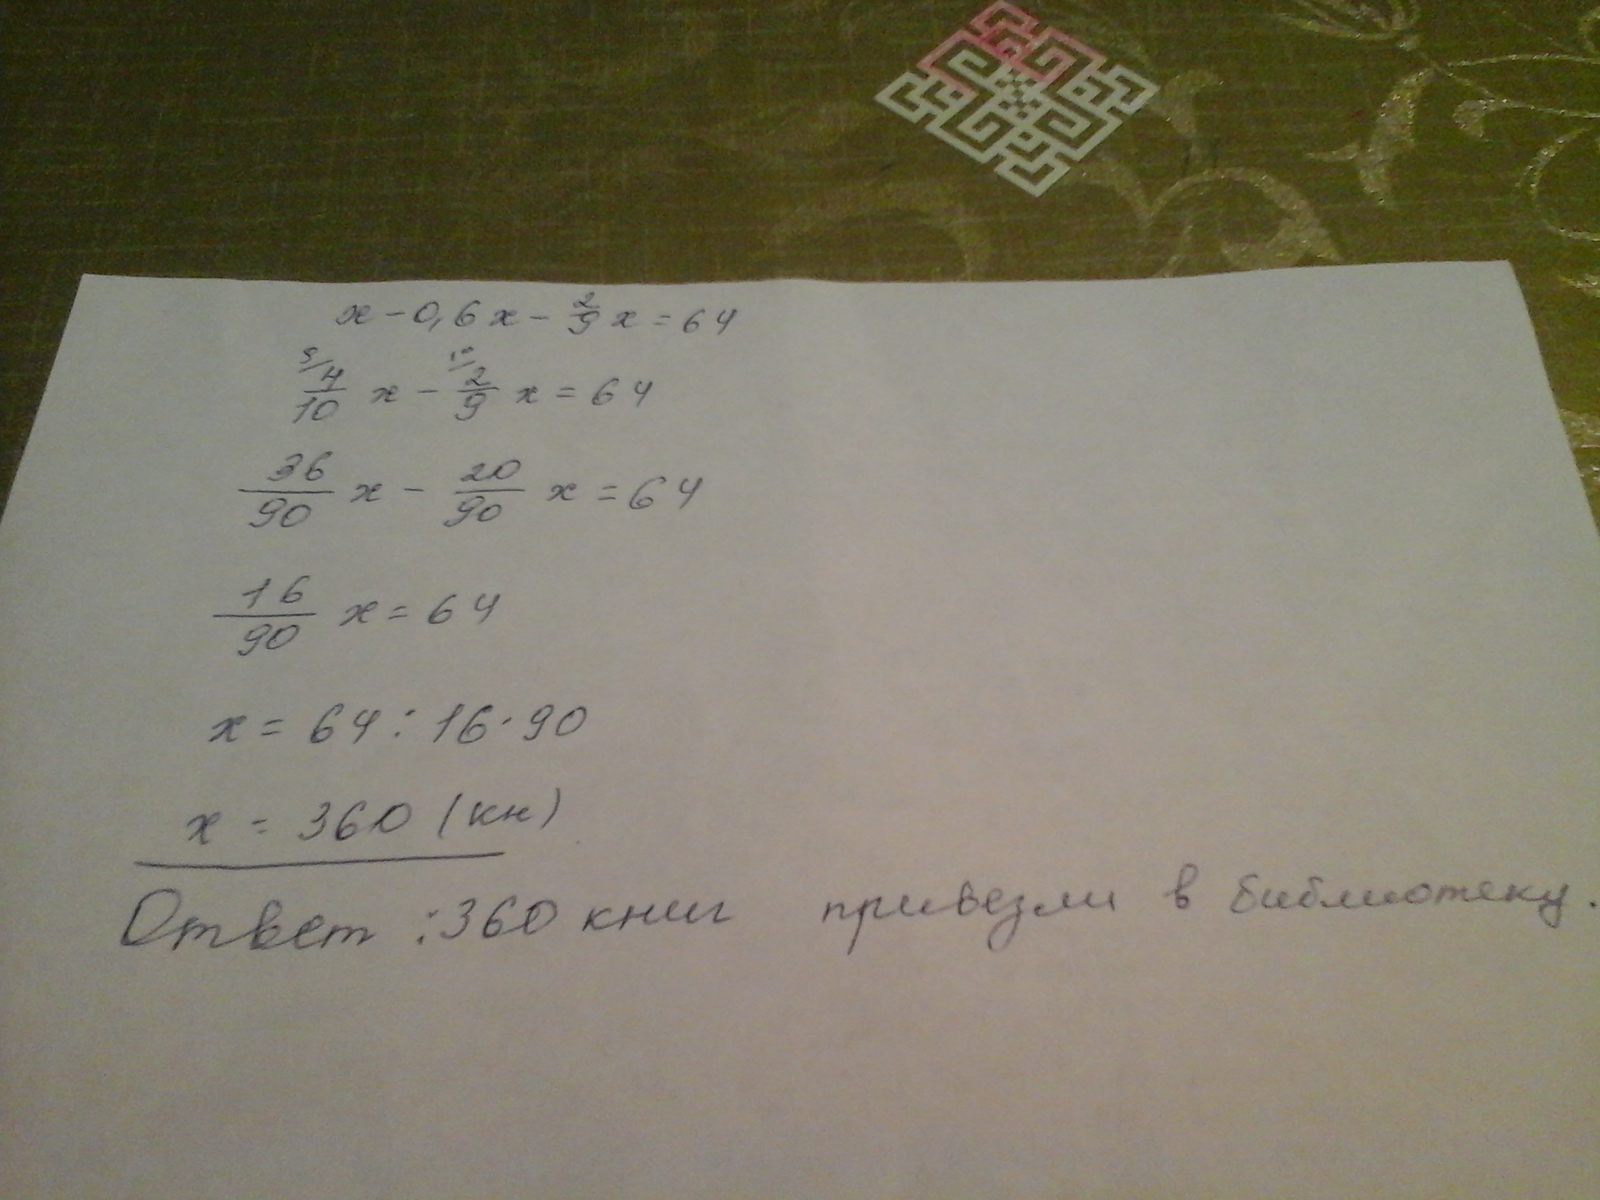 x - 0,6x - 2/9 x = 64
9/ 4/10 x - 10/ 2/9 x = 64
36/90 x - 20/90 x = 64
16/90 x = 64
x = 64 : 16 · 90
x = 360 (кн)
Ответ : 360 книг привезли в библиотеку.